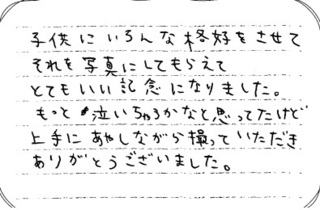 子供にいろんな格好をさせて
それを写真にしてもらえて
とてもいい記念になりました。
もっと泣いちゃうかなと思ってたけど
上手にあやしながら撮っていただき
ありがとうございました。